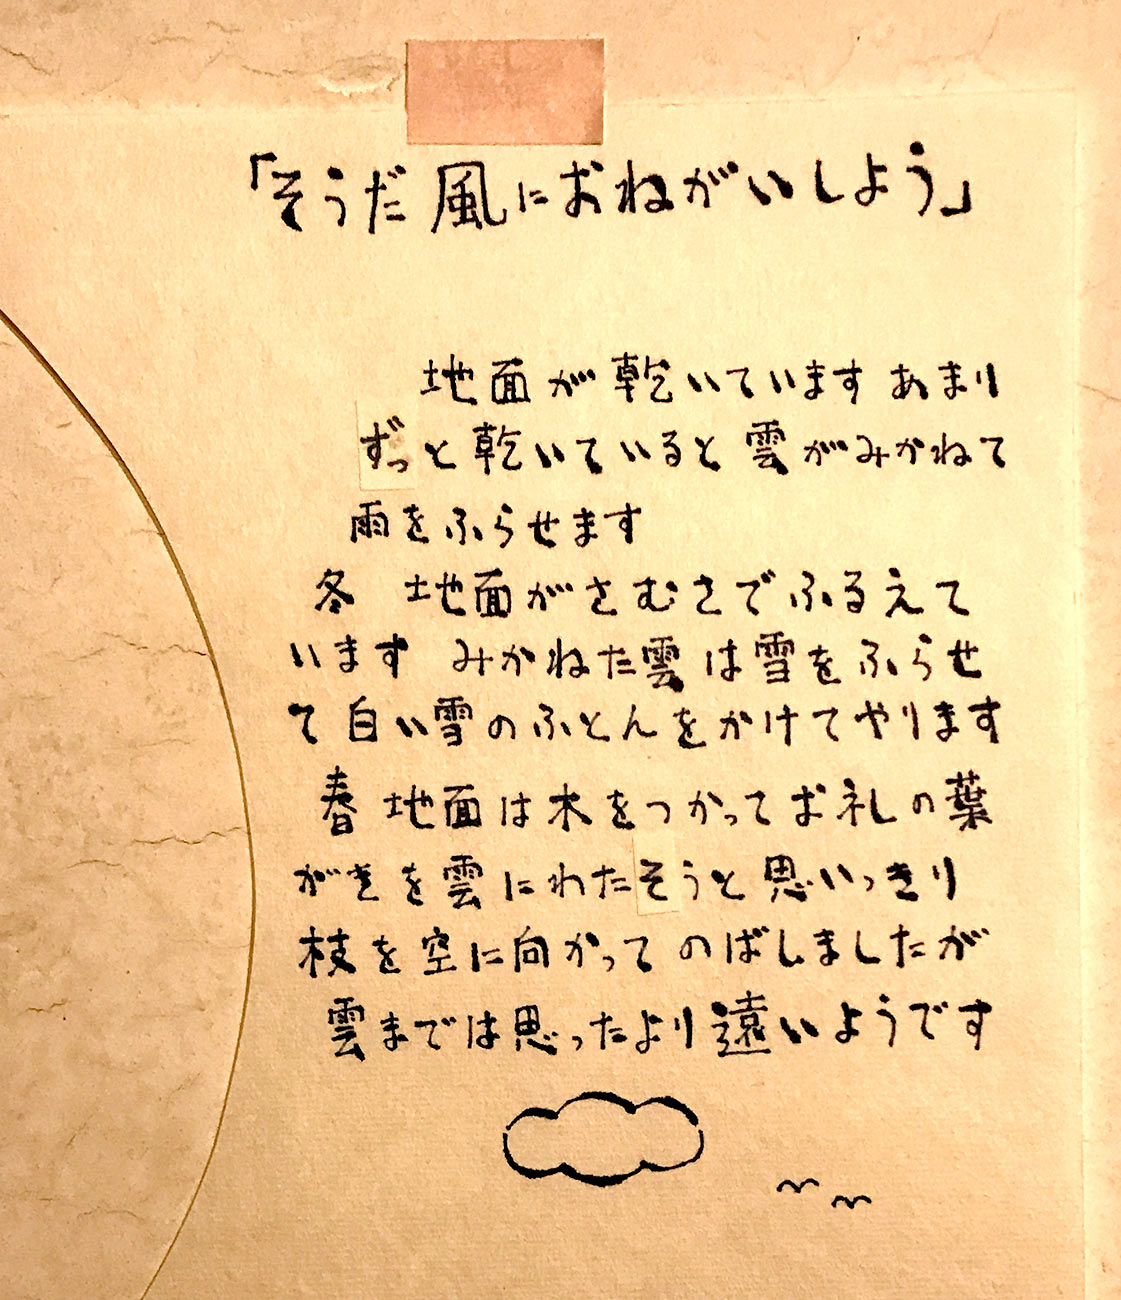 「そうだ 風におねがいしよう」
地面が乾いています あまり
ずっと乾いていると 雲がみかねて
雨をふらせます
冬 地面がさむさでふるえて
います みかねた雲は雪をふらせ
て白い雪のふとんをかけてやります
春 地面は木をつかってお礼の葉
がきを雲にわたそうと思いっきり
枝を空に向かって のばしましたが
雲までは思ったより遠いようです